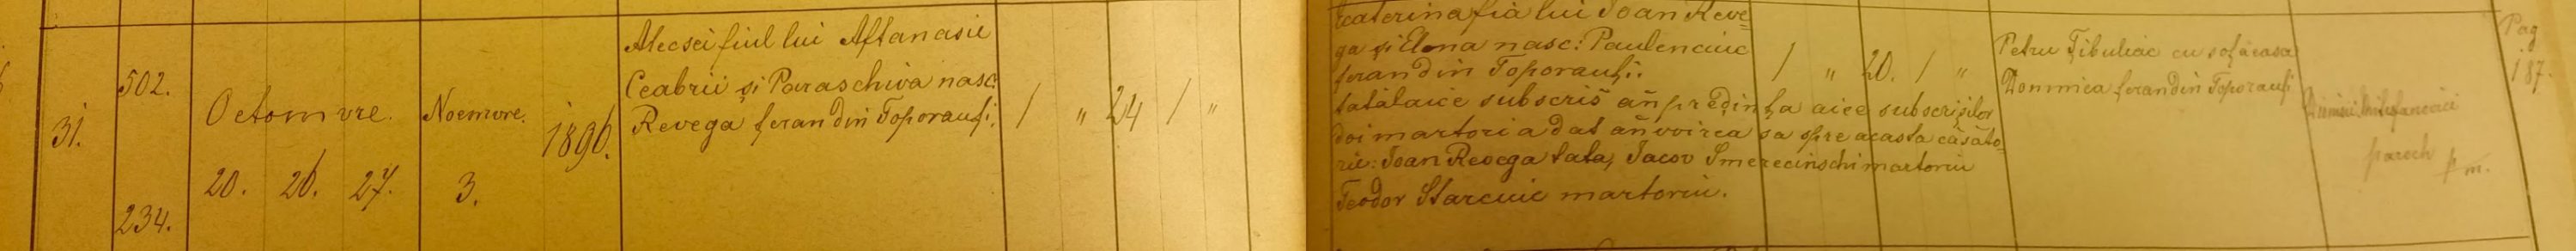 31.
502.
234.
Octomvre.
20. 26. 27.
Noemvre.
3.
1896.
Alecsei fiul lui Aftanasie
Ceabrii și Paraschiva nasc:
Revega țeran din Toporauți.
1 " 24 1 "
Ecaterina fia lui Ioan Reve=
ga și Elena nasc: Paulenciuc
țeran din Toporauți.
tatălaice subscris añ prezința aice subscrișilor
doi martori a dat añvoirea sa spre acasta căsăto=
rie: Ioan Revega tata, Iacov Smerecinschi martoriu
Teodor Starciuc martoriu.
1 " 20. 1 "
Petru Țibuleac cu soța sa
Domnica țeran din Toporauți
paroch
Pag
187.